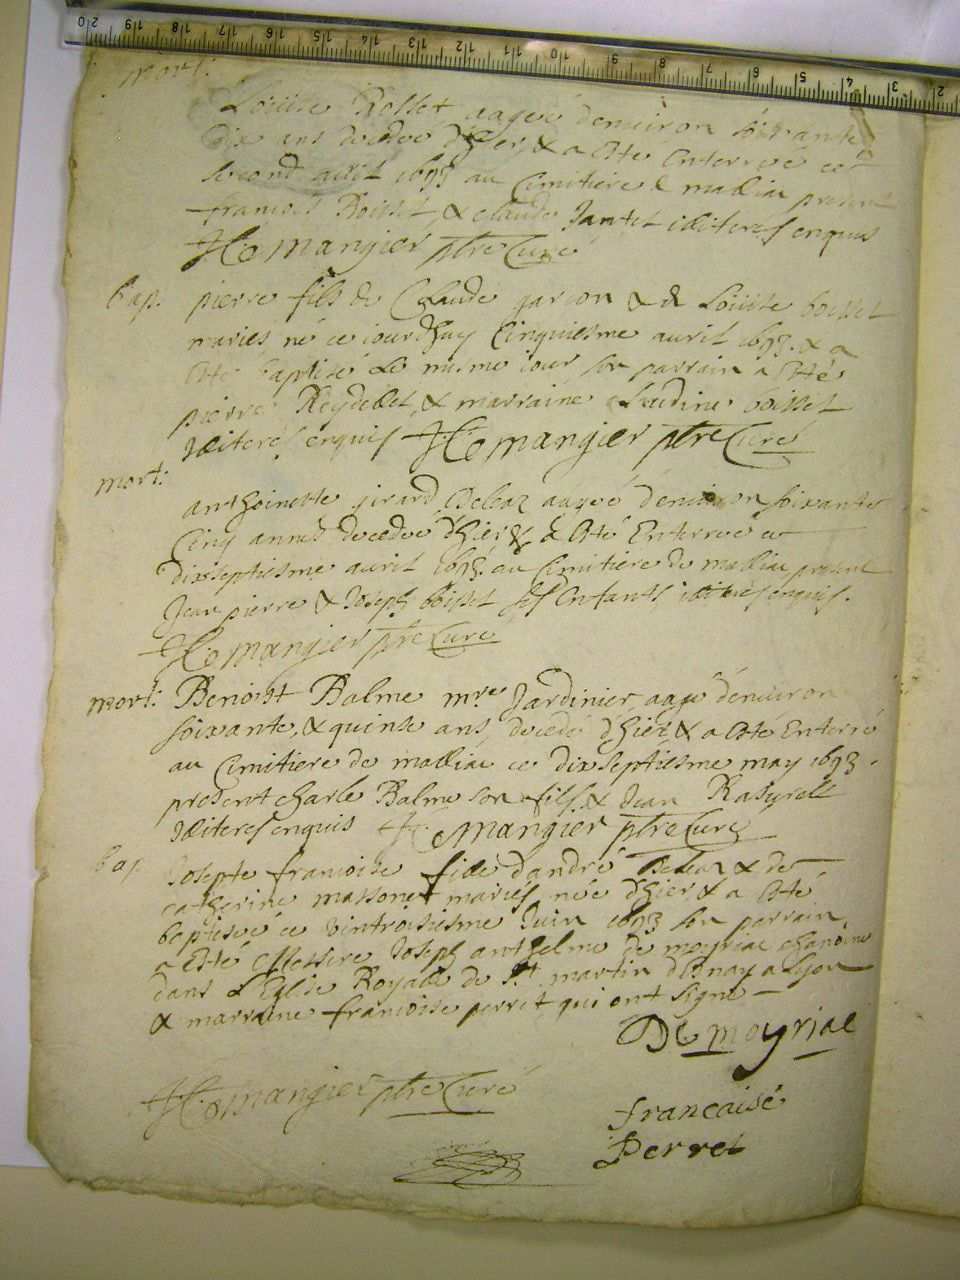 mort:
Loüise Rosset aageé denuiron soixante
dix ans decedeé dhier, & a Esté Enterreé ce
second auril 1693 au Cimitiere de mailliac present
françois Boisset, & claude Jantet illiteres enquis
H. Mangier ptre Curé
bap. pierre fils de Claude garcon & de Loüise boisset
mariés né ce iourdhuy Cinquiesme auril 1693. & a
Esté baptisé Le mesme iour son parrain a Esté
pierre Reydellet & marraine Claudine boisset
illiteres enquis H. Mangier ptre Curé
mort: anthoinette girard Beleaz aageé denuiron soixante
Cinq anneés decedeé dhier & à Esté Enterreé ce
dixseptiesme auril 1693. au Cimitiere de mailliac present
Jean pierre & Joseph boisset ses Enfants illiteres enquis.
H. Mangier ptre Curé
mort: Benoist Balme mre Jardinier, aagé denuiron
soixante, & quinse ans, decedé dhier & a Esté Enterré
au Cimitiere de mailliac ce dixseptiesme may 1693.
present charle Balme son fils, & Jean
illiteres enquis H. Mangier ptre Curé
bap. Josepte francoise fille dandré Beleaz & de
catherine massonet mariés, neé dhier, & a Esté
baptiseé ce vintroisiesme Juin 1693 son parrain
a Esté Messire Joseph anthelme de moyriac chanoine
dans L'Eglise Royalle de St martin d'Esnay a Lyon
& marraine francoise perret qui ont signé
De moyriac
H. Mangier ptre Curé
francaise
Perret